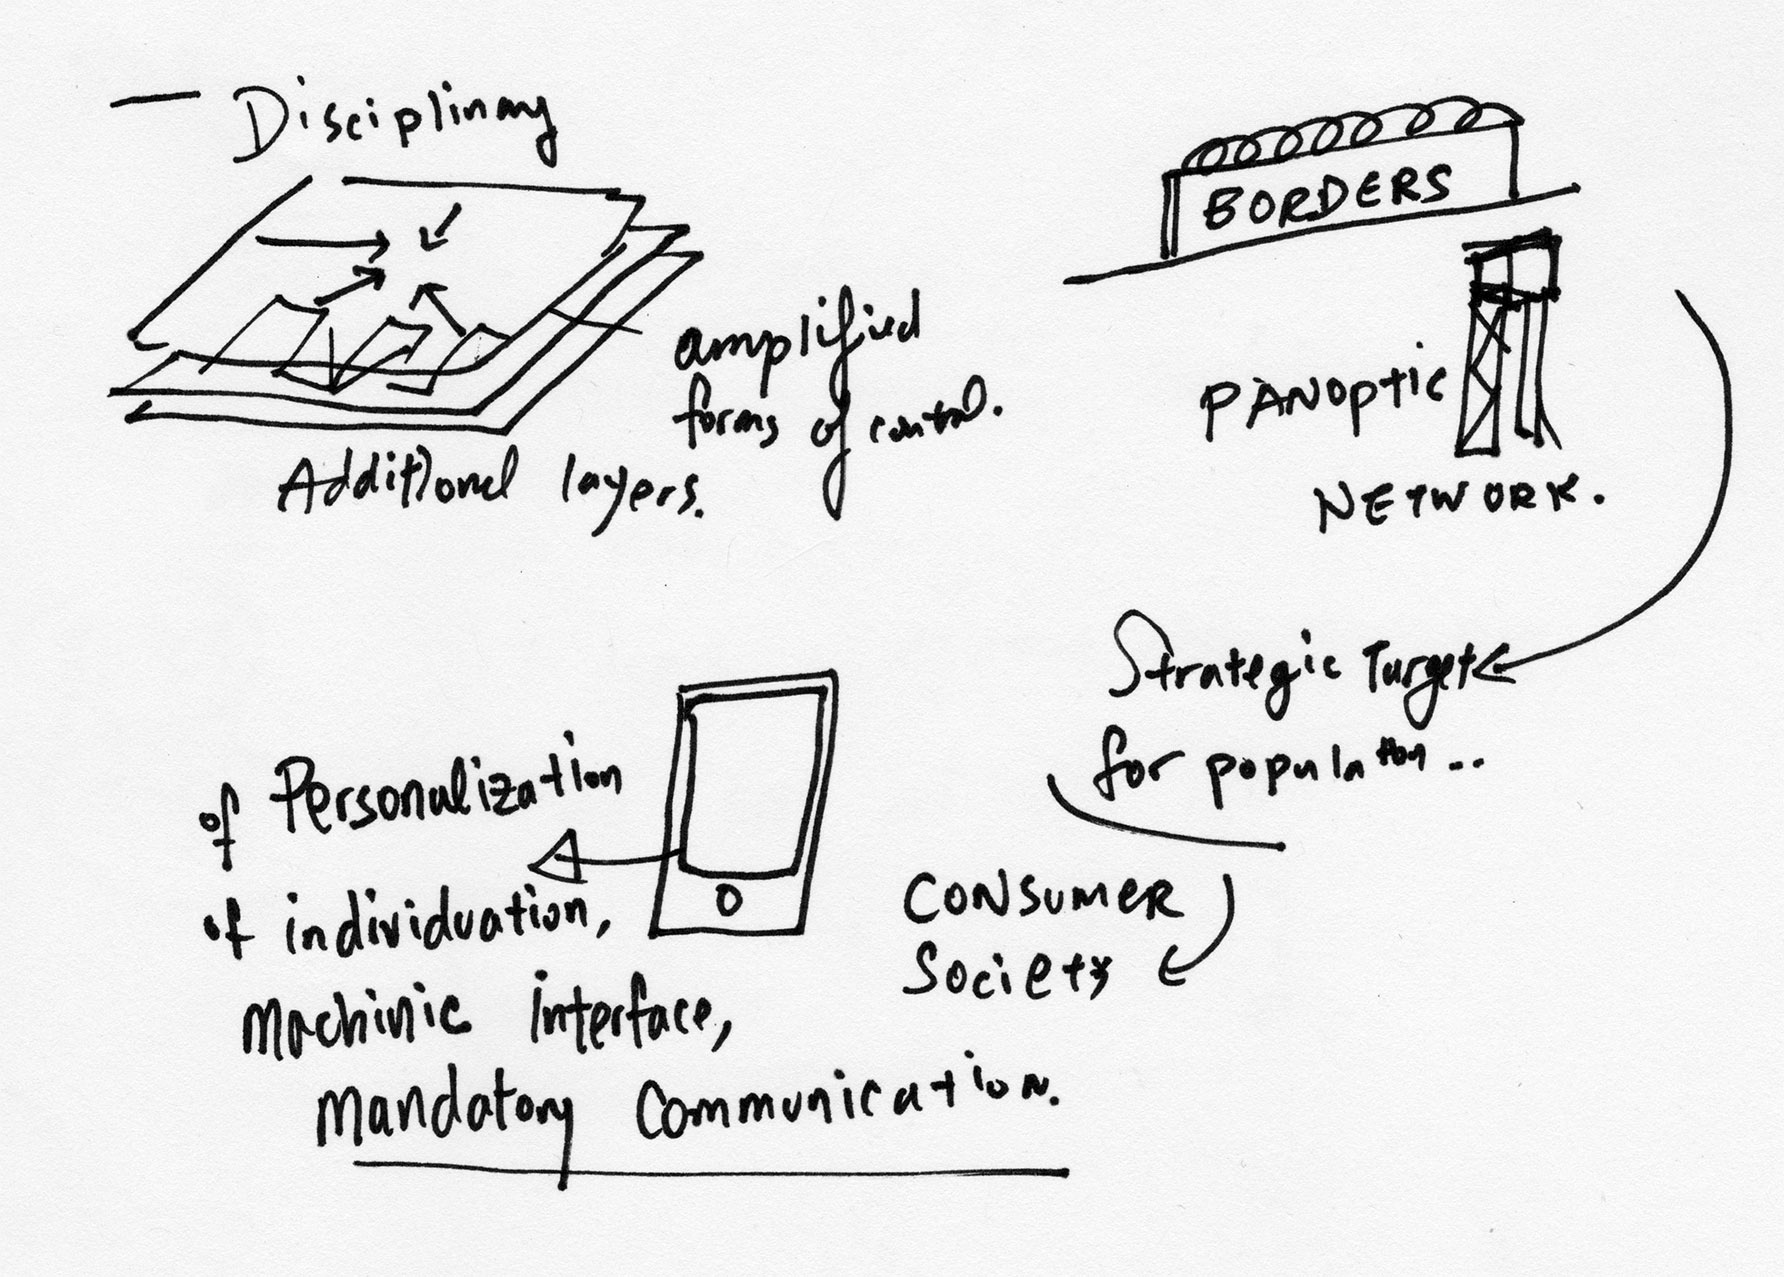 — Disciplinary
amplified
forms of control.
Additional layers.
BORDERS
PANOPTIC
NETWORK.
Strategic Target
for population...
CONSUMER
Society
of Personalization
of individuation,
machinic interface,
mandatory communication.